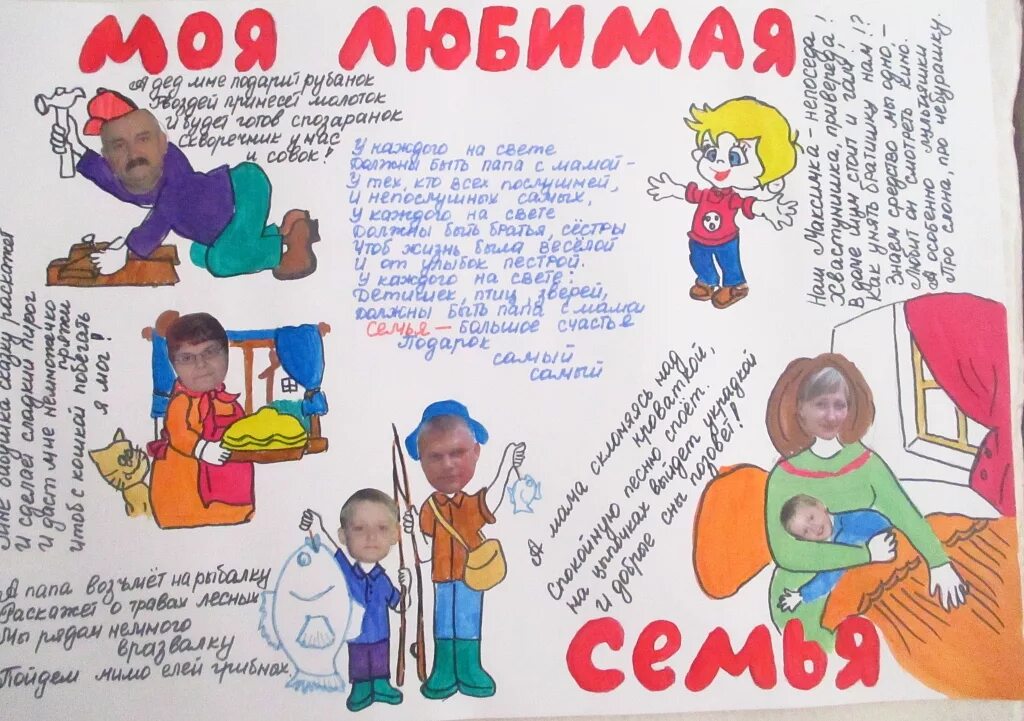 МОЯ ЛЮБИМАЯ
А дед мне подарит рубанок
Гвоздей принесёт молоток
И будет готов спозаранок
Скворечник у нас
и совок!
У каждого на свете
Должны быть папа с мамой –
У тех, кто всех послушней,
И непослушных самых,
У каждого на свете
Должны быть братья, сёстры
Чтоб жизнь была весёлой
И от улыбок пёстрой.
У каждого на свете:
Детишек, птиц, зверей,
Должны быть папа с мамой
Семья – большое счастье
Подарок
самый
самый
Наш Максимка – непоседа!
Хвастунишка, привереда!
В доме шум стоит и гам!
Как унять братишку нам!?
Знаем средство мы одно –
Любит он смотреть кино.
А особенно мультяшки
Про слона, про чебурашку.
Мне бабушка сказку раскажет
И сделает сладкий пирог
И даст мне немножечко
пряжи
Чтоб с кошкой побегать
я мог!
А мама склоняясь над
кроваткой,
Спокойную песню споёт.
На цыпочках выйдет украдкой
И добрые сны позовёт!
А папа возьмёт на рыбалку
Раскажет о травах лесных
Мы рядом немного
вразвалку
Пойдем мимо елей грибных.
семья